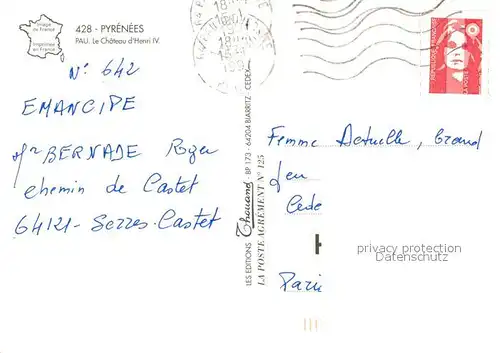 Image de France
Imprimée en France
428 - PYRÉNÉES
PAU. Le Château d'Henri IV.
N° 642
EMANCIPE
Mr BERNADE Roger
chemin de Castet
64121 - Serres-Castet
LES EDITIONS Thouand - BP 173 - 64204 BIARRITZ - CEDEX
LA POSTE AGRÉMENT N° 125
Femme Actuelle, Grand
Jeu
Cede
Paris
privacy protection
Datenschutz